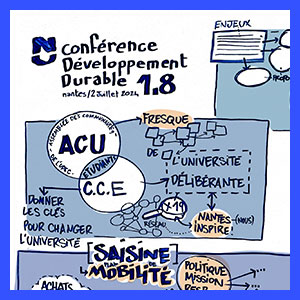 Conférence
Développement
Durable 1.8
nantes/2 juillet 2024
ENJEUX
ASSEMBLÉE DES COMMUNAUTÉS
DE L'UNIV.
ACU
ÉTUDIANTE
C.C.E
FRESQUE
DE
L'UNIVERSITÉ
DÉLIBÉRANTE
DONNER
LES CLÉS
POUR CHANGER
L'UNIVERSITÉ
x19
RÉSEAU
NANTES (NOUS)
INSPIRE!
SAISINE
PLAN DE
MOBILITÉ
ACHATS
POLITIQUE
MISSION